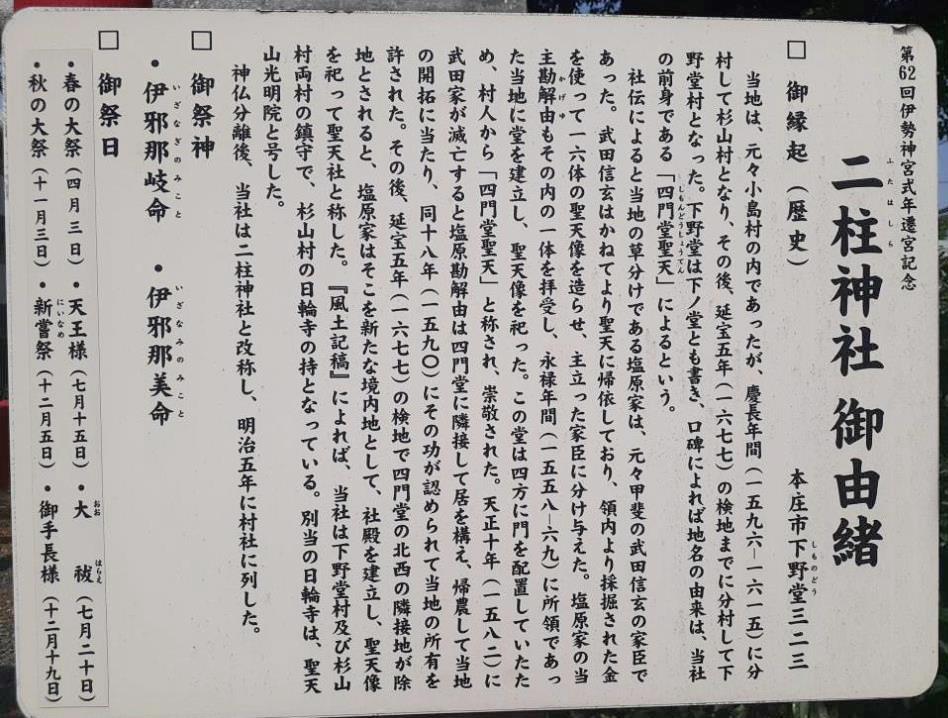 第62回伊勢神宮式年遷宮記念
二柱神社 御由緒
ふたはしら
本庄市下野堂三二三
しものどう
□ 御縁起（歴史）
当地は、元々小島村の内であったが、慶長年間（一五九六―一六一五）に分
村して杉山村となり、その後、延宝五年（一六七七）の検地までに分村して下
野堂村となった。下野堂は下ノ堂とも書き、口碑によれば地名の由来は、当社
の前身である「四門堂聖天」によるという。
しもんどうしょうてん
社伝によると当地の草分けである塩原家は、元々甲斐の武田信玄の家臣で
あった。武田信玄はかねてより聖天に帰依しており、領内より採掘された金
を使って一六体の聖天像を造らせ、主立った家臣に分け与えた。塩原家の当
主勘解由もその内の一体を拝受し、永禄年間（一五五八―六九）に所領であっ
かげゆ
た当地に堂を建立し、聖天像を祀った。この堂は四方に門を配置していたた
め、村人から「四門堂聖天」と称され、崇敬された。天正十年（一五八二）に
武田家が滅亡すると塩原勘解由は四門堂に隣接して居を構え、帰農して当地
の開拓に当たり、同十八年（一五九〇）にその功が認められて当地の所有を
許された。その後、延宝五年（一六七七）の検地で四門堂の北西の隣接地が除
地とされると、塩原家はそこを新たな境内地として、社殿を建立し、聖天像
を祀って聖天社と称した。『風土記稿』によれば、当社は下野堂村及び杉山
村両村の鎮守で、杉山村の日輪寺の持となっている。別当の日輪寺は、聖天
山光明院と号した。
神仏分離後、当社は二柱神社と改称し、明治五年に村社に列した。
□ 御祭神
・伊邪那岐命 ・伊邪那美命
いざなぎのみこと いざなみのみこと
□ 御祭日
・春の大祭（四月三日）・天王様（七月十五日）・大祓（七月二十日）
おお はらえ
・秋の大祭（十一月三日）・新嘗祭（十二月五日）・御手長様（十二月十九日）
にいなめ